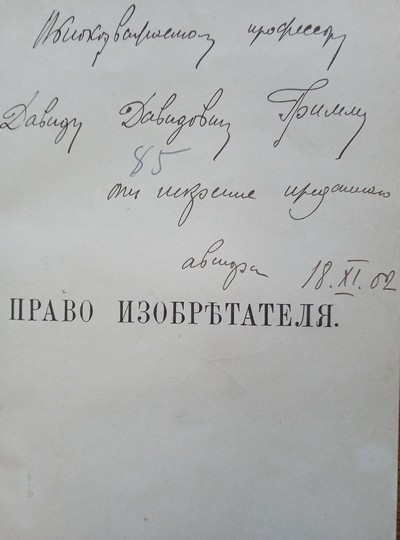 Высокоуважаемому профессору
Давиду Давидовичу Гримму
85
от искренне преданнаго
автора
18.XI.02
ПРАВО ИЗОБРѢТАТЕЛЯ.